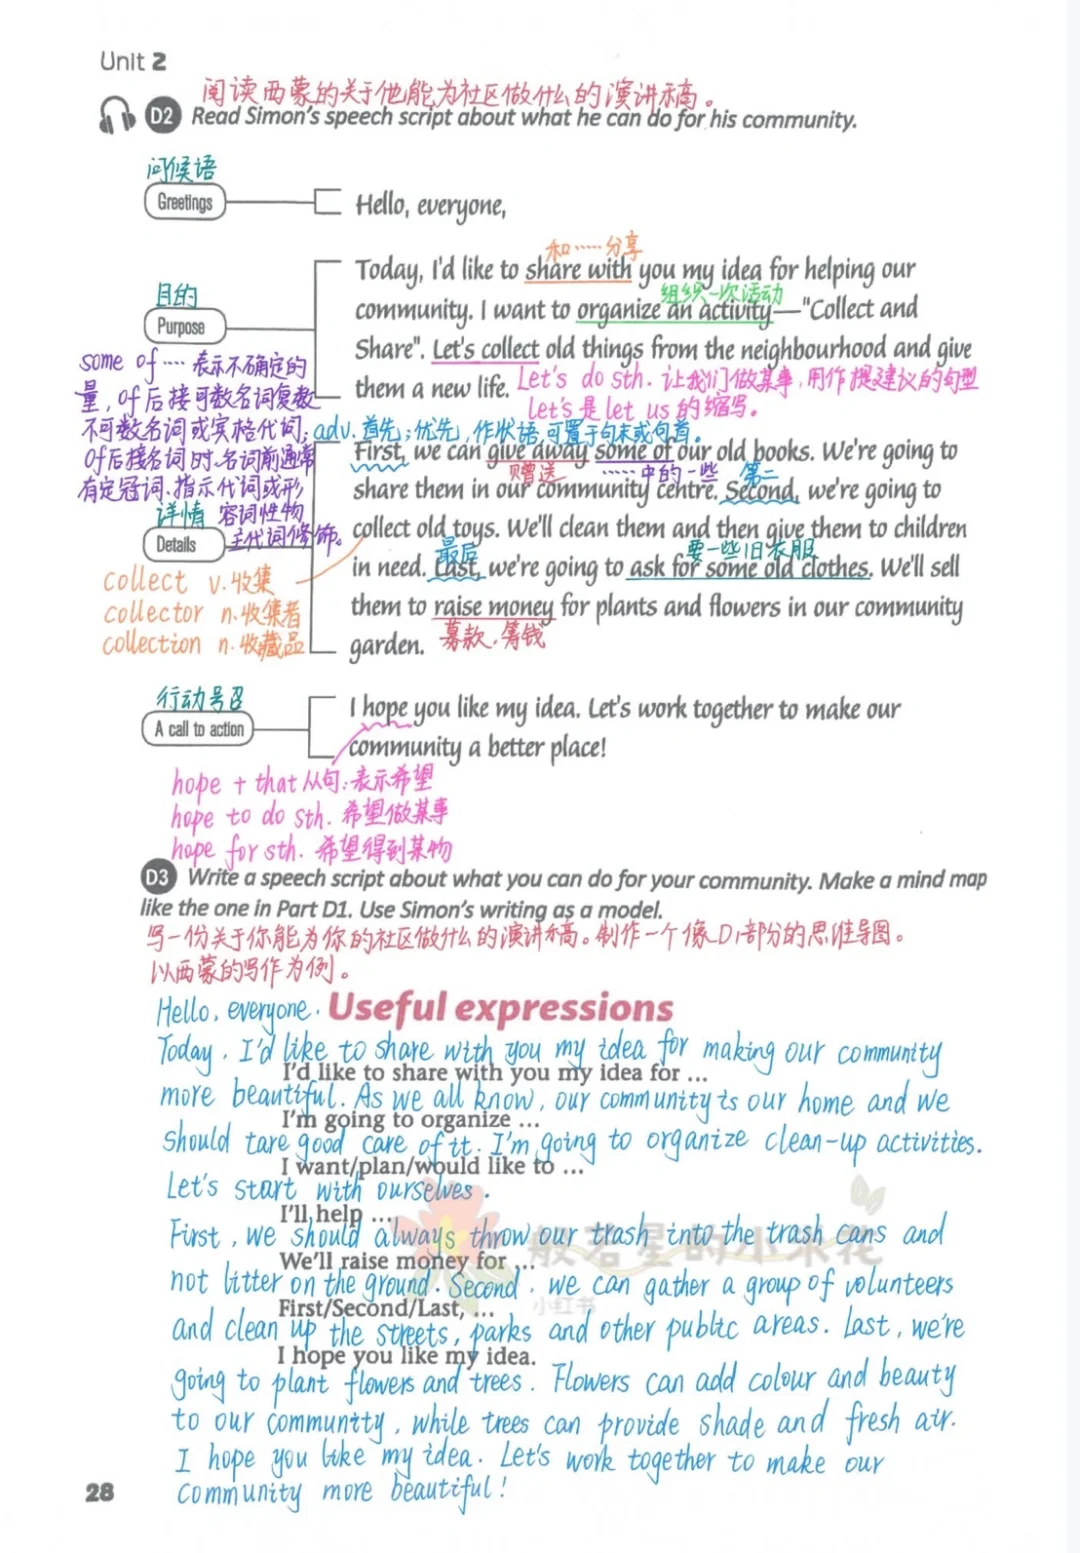 Unit 2
阅读西蒙的关于他能为社区做什么的演讲稿。
D2 Read Simon's speech script about what he can do for his community.
问候语
Greetings
Hello, everyone,
和……分享
Today, I'd like to share with you my idea for helping our
目的
组织一次活动
community. I want to organize an activity—"Collect and
Purpose
Share". Let's collect old things from the neighbourhood and give
them a new life. Let's do sth. 让我们做某事,用作提建议的句型
let's是let us的缩写。
some of …… 表示不确定的
量,of后接可数名词复数
不可数名词或宾格代词;
of后接名词时,名词前通常
有定冠词、指示代词或形
容词性物
主代词修饰。
adv. 首先;优先,作状语,可置于句末或句首。
First, we can give away some of our old books. We're going to
赠送 ……中的一些 第二
share them in our community centre. Second, we're going to
详情
Details
collect old toys. We'll clean them and then give them to children
最后 要一些旧衣服
in need. Last, we're going to ask for some old clothes. We'll sell
collect v. 收集
collector n. 收集者
collection n. 收藏品
them to raise money for plants and flowers in our community
garden. 募款,筹钱
行动号召
A call to action
I hope you like my idea. Let's work together to make our
community a better place!
hope + that从句:表示希望
hope to do sth. 希望做某事
hope for sth. 希望得到某物
D3 Write a speech script about what you can do for your community. Make a mind map
like the one in Part D1. Use Simon's writing as a model.
写一份关于你能为你的社区做什么的演讲稿。制作一个像D1部分的思维导图。
以西蒙的写作为例。
Hello, everyone.
Useful expressions
Today, I'd like to share with you my idea for making our community
I'd like to share with you my idea for ...
more beautiful. As we all know, our community is our home and we
I'm going to organize ...
should tare good care of it. I'm going to organize clean-up activities.
I want/plan/would like to ...
Let's start with ourselves.
I'll help ...
First, we should always throw our trash into the trash cans and
般若星的小米花
We'll raise money for ...
not litter on the ground. Second, we can gather a group of volunteers
小红书
First/Second/Last, ...
and clean up the streets, parks and other public areas. Last, we're
I hope you like my idea.
going to plant flowers and trees. Flowers can add colour and beauty
to our community, while trees can provide shade and fresh air.
I hope you like my idea. Let's work together to make our
community more beautiful!
28